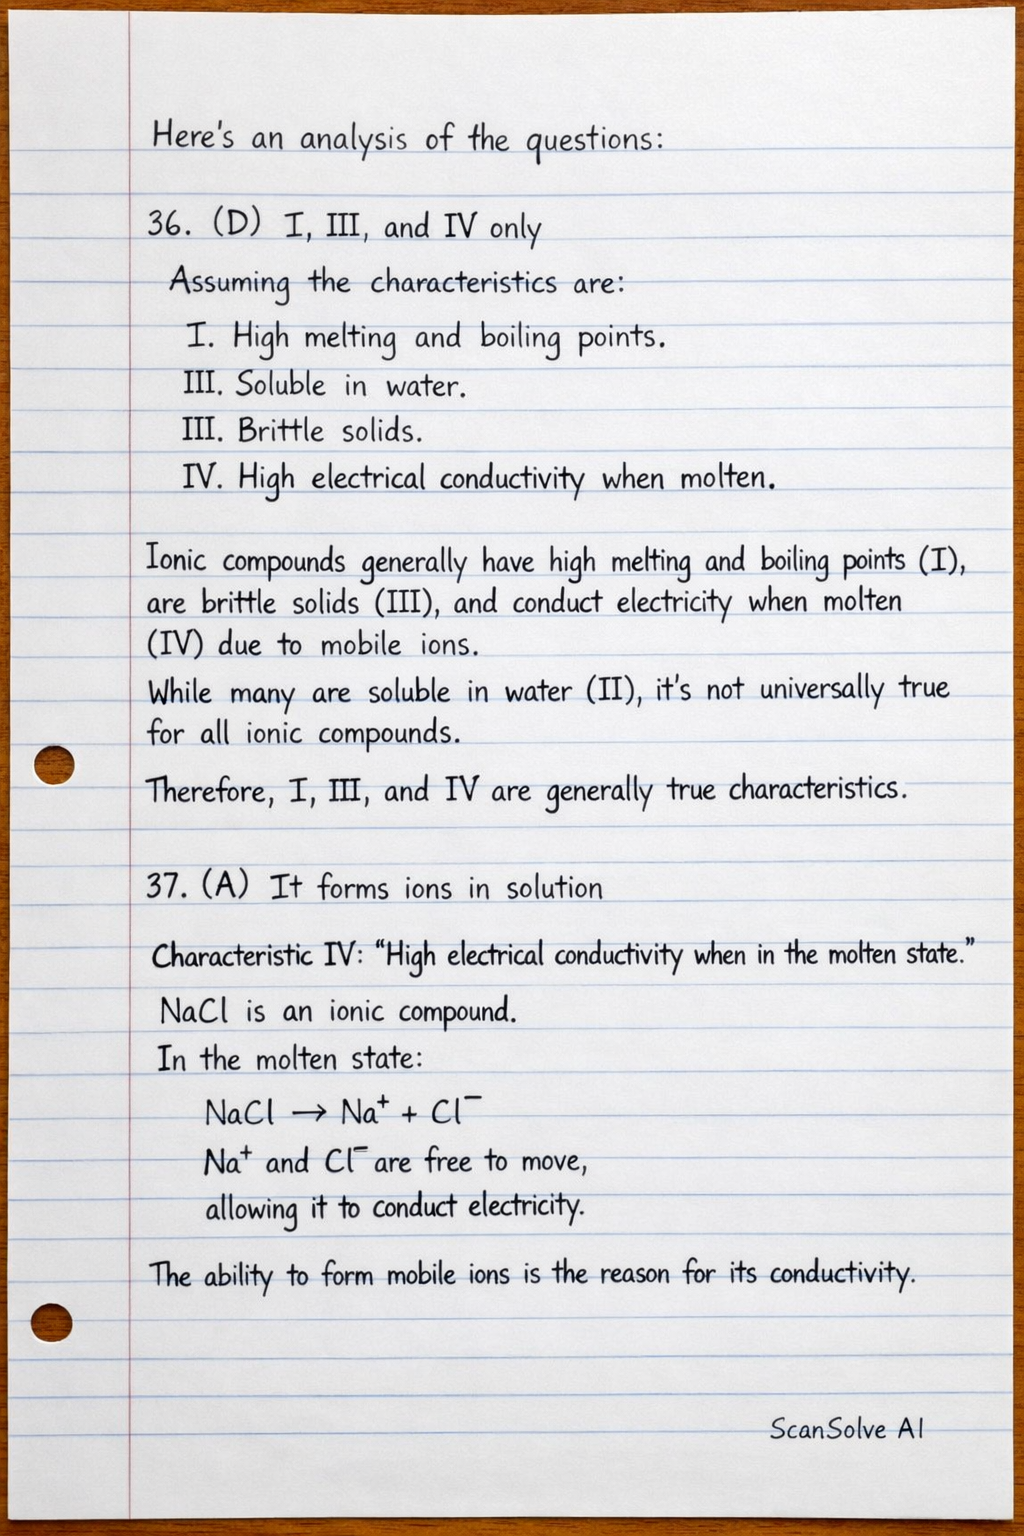 Here's an analysis of the questions:
36. (D) I, III, and IV only
Assuming the characteristics are:
I. High melting and boiling points.
III. Soluble in water.
III. Brittle solids.
IV. High electrical conductivity when molten.
Ionic compounds generally have high melting and boiling points (I),
are brittle solids (III), and conduct electricity when molten
(IV) due to mobile ions.
While many are soluble in water (II), it's not universally true
for all ionic compounds.
Therefore, I, III, and IV are generally true characteristics.
37. (A) It forms ions in solution
Characteristic IV: "High electrical conductivity when in the molten state."
NaCl is an ionic compound.
In the molten state:
NaCl → Na⁺ + Cl⁻
Na⁺ and Cl⁻ are free to move,
allowing it to conduct electricity.
The ability to form mobile ions is the reason for its conductivity.
ScanSolve AI